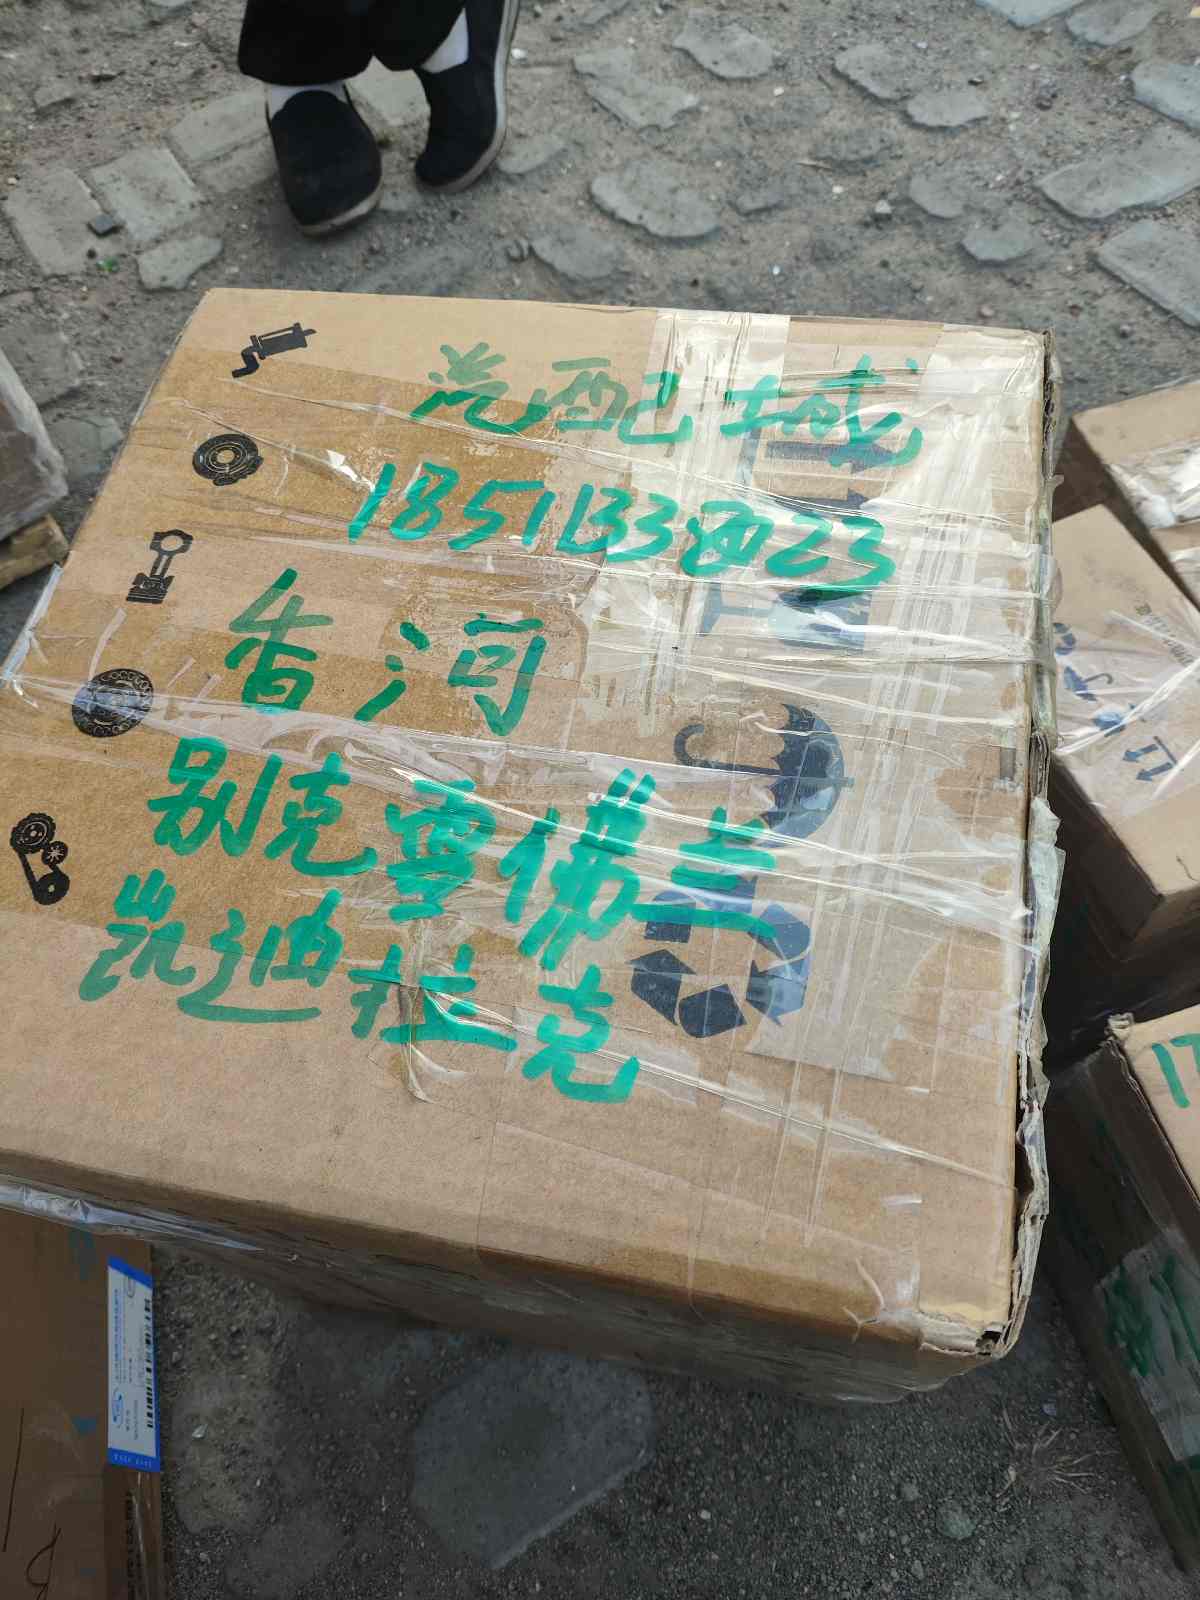 汽配城
18511338023
香河
别克雪佛兰
凯迪拉克
17